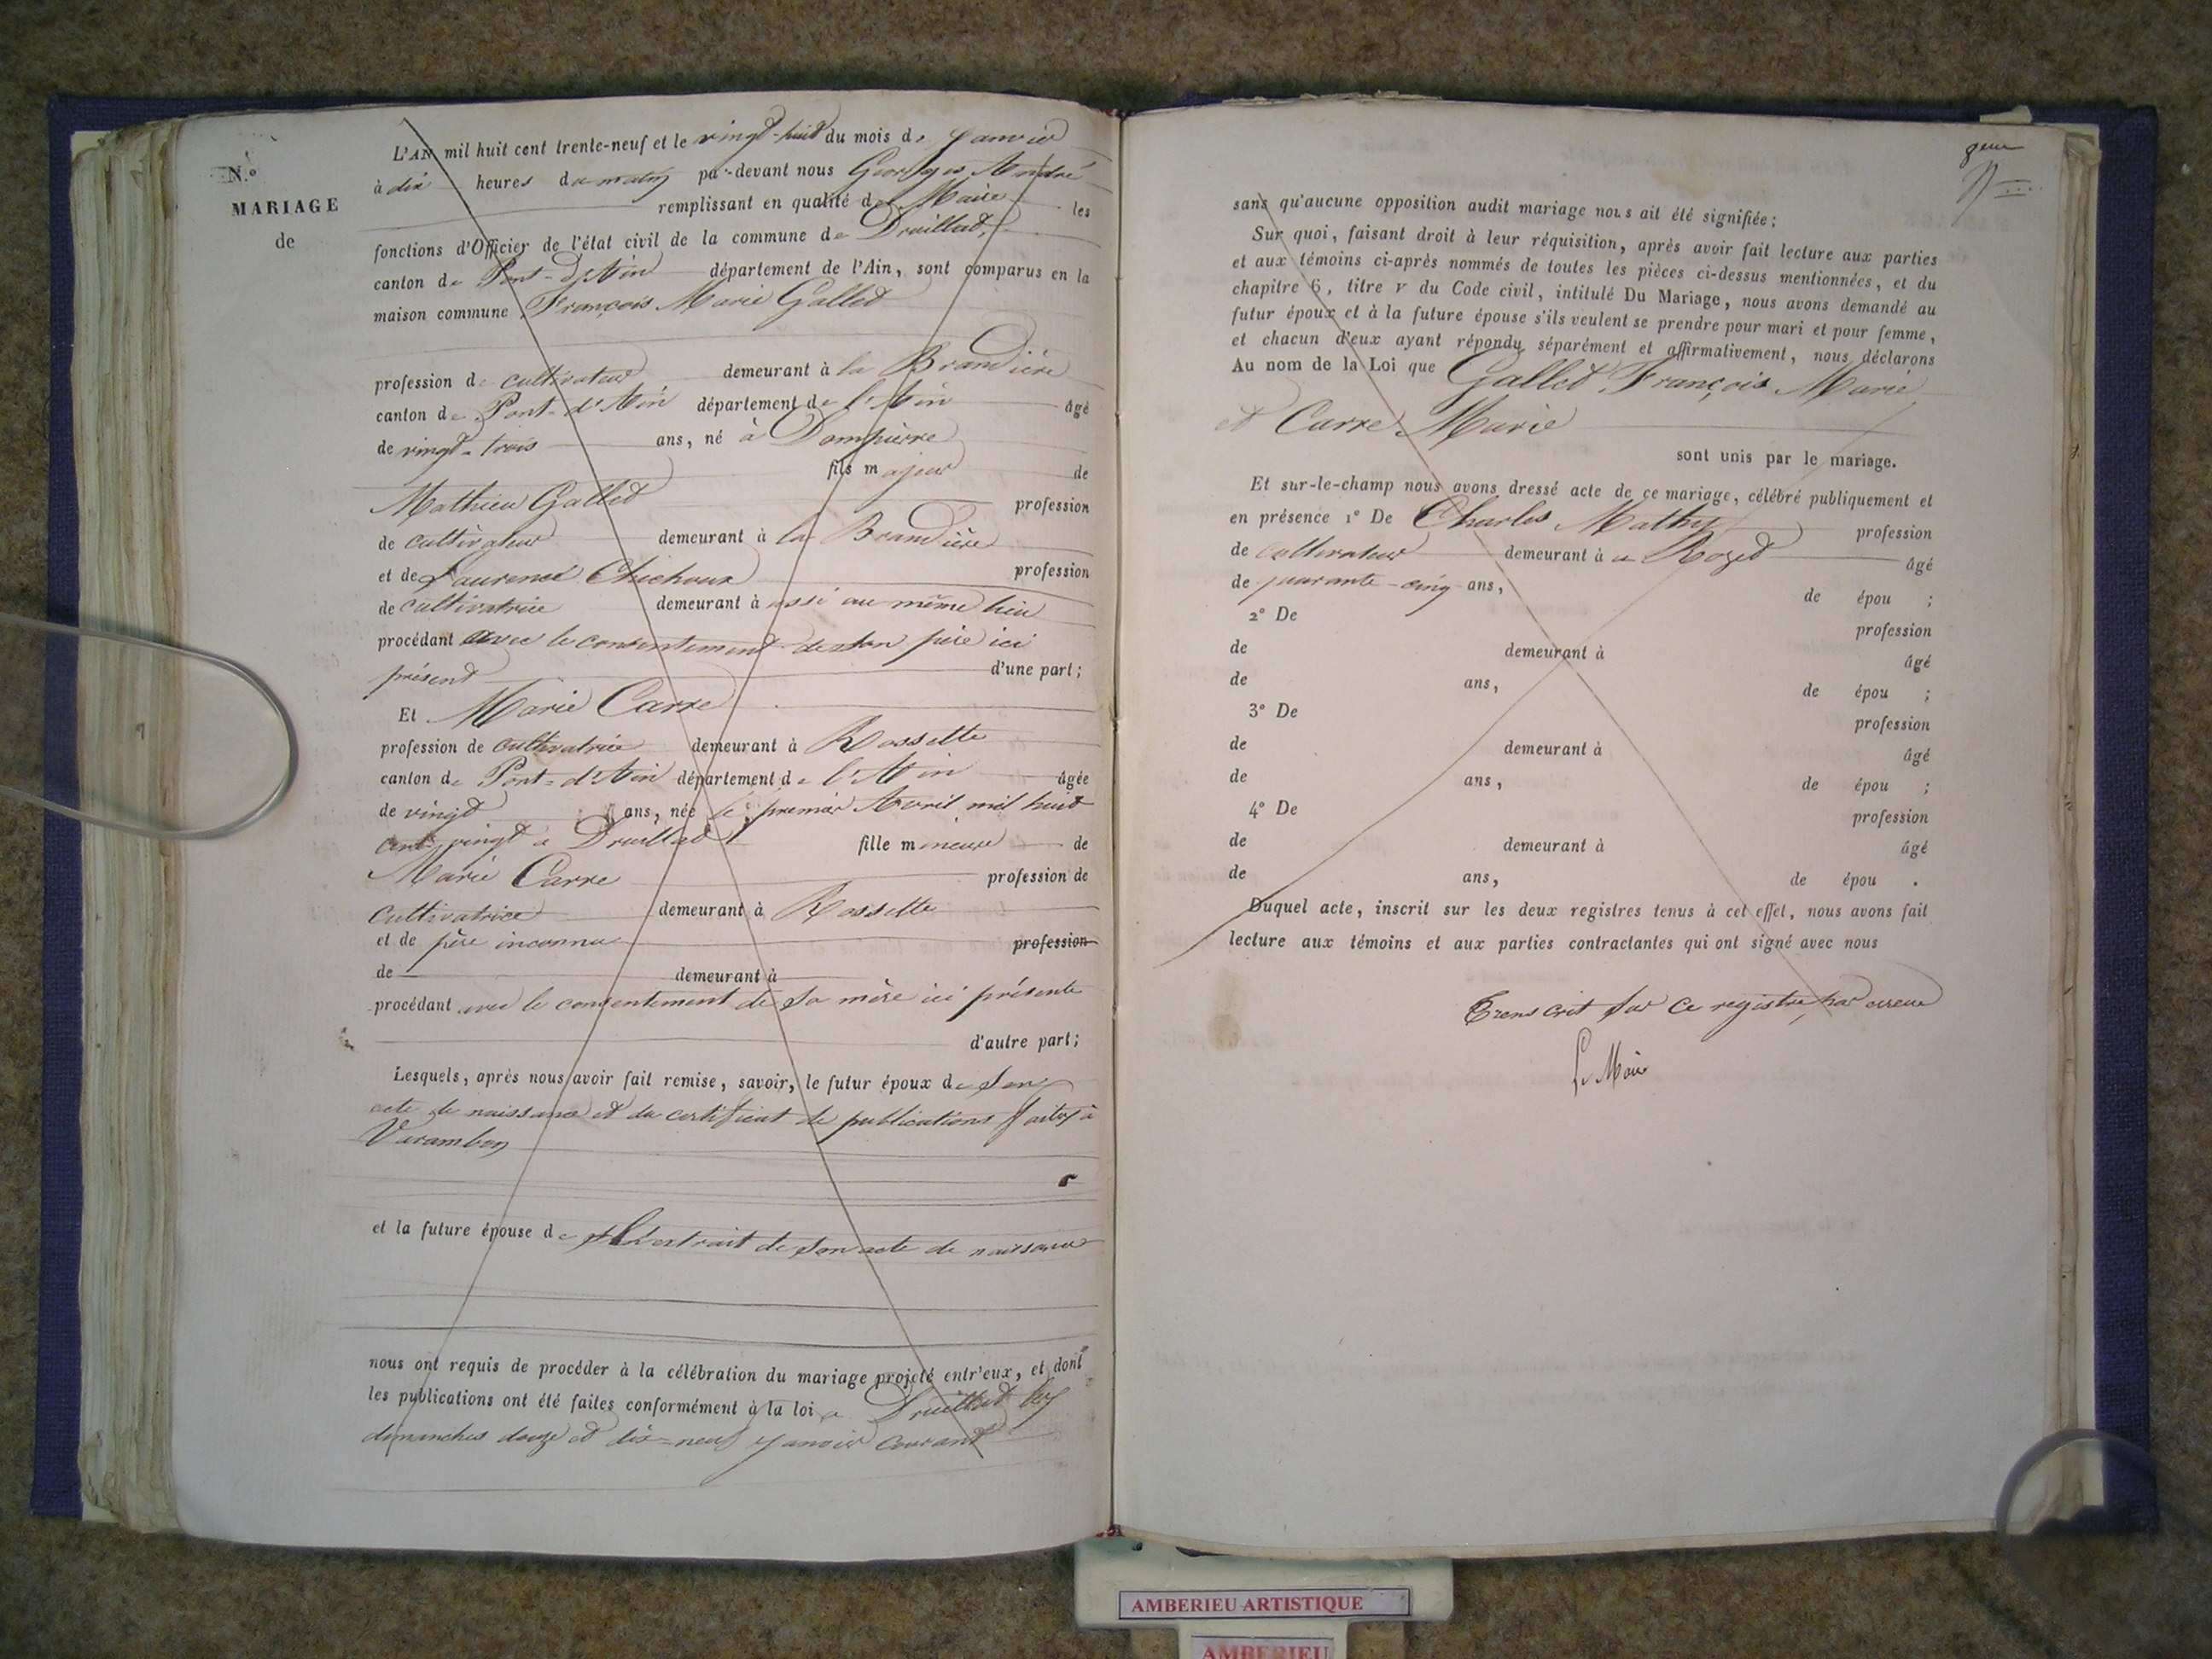 N.º
MARIAGE
de
L'AN mil huit cent trente-neuf et le vingt-huit du mois de Janvier
à dix heures du matin par-devant nous Georges André
remplissant en qualité de Maire les
fonctions d'Officier de l'état civil de la commune de Druillat,
canton de Pont-d'Ain département de l'Ain, sont comparus en la
maison commune François Marie Gallet
profession de cultivateur demeurant à la Brandière
canton de Pont-d'Ain département de l'Ain âgé
de vingt-trois ans, né à Dompierre
fils majeur de
Mathieu Gallet profession
de cultivateur demeurant à la Brandière
et de Laurence Chichoux profession
de cultivatrice demeurant à ussi au même lieu
procédant avec le consentement de son père ici
présent d'une part;
Et Marie Carre
profession de cultivatrice demeurant à Rossette
canton de Pont-d'Ain département de l'Ain âgée
de vingt ans, née le premier Avril mil huit
cent vingt à Druillat fille mineure de
Marie Carre profession de
Cultivatrice demeurant à Rossette
et de père inconnu profession
de demeurant à
procédant avec le consentement de sa mère ici présente
d'autre part;
Lesquels, après nous avoir fait remise, savoir, le futur époux de son
acte de naissance et du certificat de publications faites à
Varambon
et la future épouse de l'extrait de son acte de naissance
nous ont requis de procéder à la célébration du mariage projeté entr'eux, et dont
les publications ont été faites conformément à la loi à Druillat les
dimanches douze et dix-neuf Janvier courant
sans qu'aucune opposition audit mariage nous ait été signifiée;
Sur quoi, faisant droit à leur réquisition, après avoir fait lecture aux parties
et aux témoins ci-après nommés de toutes les pièces ci-dessus mentionnées, et du
chapitre 6, titre v du Code civil, intitulé Du Mariage, nous avons demandé au
futur époux et à la future épouse s'ils veulent se prendre pour mari et pour femme,
et chacun d'eux ayant répondu séparément et affirmativement, nous déclarons
Au nom de la Loi que Gallet François Marie
et Carre Marie
sont unis par le mariage.
Et sur-le-champ nous avons dressé acte de ce mariage, célébré publiquement et
en présence 1º De Charles Mathy profession
de cultivateur demeurant à a Rozet âgé
de quarante-cinq ans, de épou ;
2º De profession
de demeurant à âgé
de ans, de épou ;
3º De profession
de demeurant à âgé
de ans, de épou ;
4º De profession
de demeurant à âgé
de ans, de épou .
Duquel acte, inscrit sur les deux registres tenus à cet effet, nous avons fait
lecture aux témoins et aux parties contractantes qui ont signé avec nous
Trenscrit sur ce registre par erreur
Le Maire
AMBERIEU ARTISTIQUE
AMBERIEU